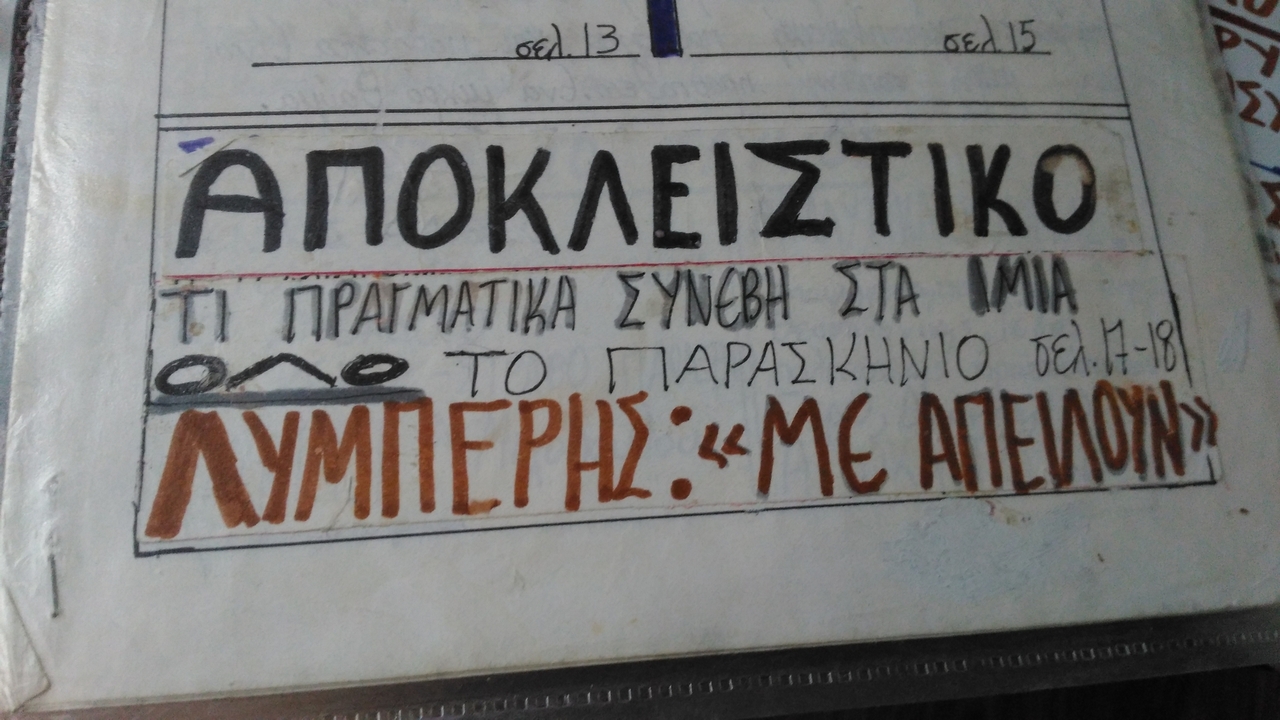 σελ.13 σελ.15
ΑΠΟΚΛΕΙΣΤΙΚΟ
ΤΙ ΠΡΑΓΜΑΤΙΚΑ ΣΥΝΕΒΗ ΣΤΑ ΙΜΙΑ
ΟΛΟ ΤΟ ΠΑΡΑΣΚΗΝΙΟ σελ.17-18
ΛΥΜΠΕΡΗΣ: «ΜΕ ΑΠΕΙΛΟΥΝ»